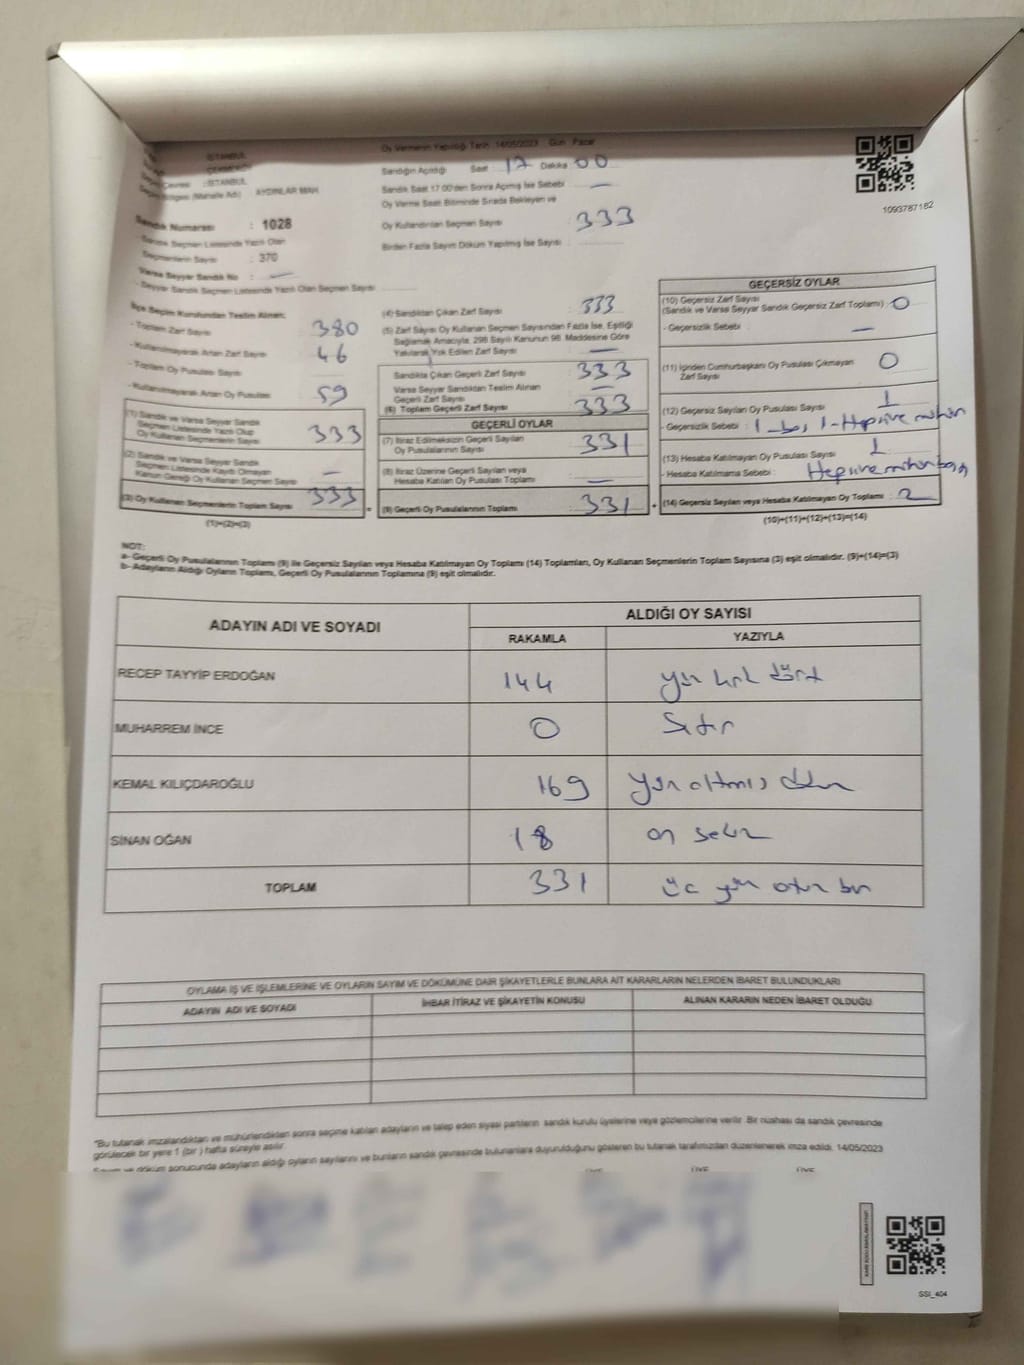 Oy Vermenin Yapıldığı Tarih 14/05/2023 Gün Pazar
İSTANBUL
ÇEKMEKÖY
Sandığın Açıldığı Saat : 17 Dakika 00
Çevresi : İSTANBUL
Bölgesi (Mahalle Adı) AYDINLAR MAH
Sandık Saat 17:00'den Sonra Açılmış İse Sebebi : —
Oy Verme Saati Bitiminde Sırada Bekleyen ve
Oy Kullandırılan Seçmen Sayısı : 333
1093787182
Sandık Numarası : 1028
Birden Fazla Sayım Döküm Yapılmış İse Sayısı :
- Sandık Seçmen Listesinde Yazılı Olan
Seçmenlerin Sayısı : 370
Varsa Seyyar Sandık No : —
- Seyyar Sandık Seçmen Listesinde Yazılı Olan Seçmen Sayısı :
İlçe Seçim Kurulundan Teslim Alınan;
- Toplam Zarf Sayısı : 380
- Kullanılmayarak Artan Zarf Sayısı : 46
- Toplam Oy Pusulası Sayısı :
- Kullanılmayarak Artan Oy Pusulası : 59
(1) Sandık ve Varsa Seyyar Sandık
Seçmen Listesinde Yazılı Olup
Oy Kullanan Seçmenlerin Sayısı : 333
(2) Sandık ve Varsa Seyyar Sandık
Seçmen Listesinde Kaydı Olmayan
Kanun Gereği Oy Kullanan Seçmen Sayısı : —
(3) Oy Kullanan Seçmenlerin Toplam Sayısı : 333
(1)+(2)=(3)
(4) Sandıktan Çıkan Zarf Sayısı : 333
(5) Zarf Sayısı Oy Kullanan Seçmen Sayısından Fazla İse, Eşitliği
Sağlamak Amacıyla, 298 Sayılı Kanunun 98. Maddesine Göre
Yakılarak Yok Edilen Zarf Sayısı : —
Sandıkta Çıkan Geçerli Zarf Sayısı : 333
Varsa Seyyar Sandıktan Teslim Alınan
Geçerli Zarf Sayısı : —
(6) Toplam Geçerli Zarf Sayısı : 333
GEÇERLİ OYLAR
(7) İtiraz Edilmeksizin Geçerli Sayılan
Oy Pusulalarının Sayısı : 331
(8) İtiraz Üzerine Geçerli Sayılan veya
Hesaba Katılan Oy Pusulası Toplamı : —
= (9) Geçerli Oy Pusulalarının Toplamı : 331 +
GEÇERSİZ OYLAR
(10) Geçersiz Zarf Sayısı
(Sandık ve Varsa Seyyar Sandık Geçersiz Zarf Toplamı) : 0
- Geçersizlik Sebebi : —
(11) İçinden Cumhurbaşkanı Oy Pusulası Çıkmayan
Zarf Sayısı : 0
(12) Geçersiz Sayılan Oy Pusulası Sayısı : 1
- Geçersizlik Sebebi : 1-boş 1-Hepsine mühür
(13) Hesaba Katılmayan Oy Pusulası Sayısı : 1
- Hesaba Katılmama Sebebi : Hepsine mühür
(14) Geçersiz Sayılan veya Hesaba Katılmayan Oy Toplamı : 2
(10)+(11)+(12)+(13)=(14)
NOT:
a- Geçerli Oy Pusulalarının Toplamı (9) ile Geçersiz Sayılan veya Hesaba Katılmayan Oy Toplamı (14) Toplamları, Oy Kullanan Seçmenlerin Toplam Sayısına (3) eşit olmalıdır. (9)+(14)=(3)
b- Adayların Aldığı Oyların Toplamı, Geçerli Oy Pusulalarının Toplamına (9) eşit olmalıdır.
ADAYIN ADI VE SOYADI ALDIĞI OY SAYISI
RAKAMLA YAZIYLA
RECEP TAYYİP ERDOĞAN 144 yüz kırk dört
MUHARREM İNCE 0 Sıfır
KEMAL KILIÇDAROĞLU 169 Yüz altmış dokuz
SİNAN OĞAN 18 on sekiz
TOPLAM 331 üç yüz otuz bir
OYLAMA İŞ VE İŞLEMLERİNE VE OYLARIN SAYIM VE DÖKÜMÜNE DAİR ŞİKAYETLERLE BUNLARA AİT KARARLARIN NELERDEN İBARET BULUNDUKLARI
ADAYIN ADI VE SOYADI İHBAR İTİRAZ VE ŞİKAYETİN KONUSU ALINAN KARARIN NEDEN İBARET OLDUĞU
"Bu tutanak imzalandıktan ve mühürlendikten sonra seçime katılan adayların ve talep eden siyasi partilerin sandık kurulu üyelerine veya gözlemcilerine verilir. Bir nüshası da sandık çevresinde
görülecek bir yere 1 (bir ) hafta süreyle asılır.
Sayım ve döküm sonucunda adayların aldığı oyların sayılarını ve bunların sandık çevresinde bulunanlara duyurulduğunu gösteren bu tutanak tarafımızdan düzenlenerek imza edildi. 14/05/2023
ÜYE ÜYE ÜYE
SSI_404